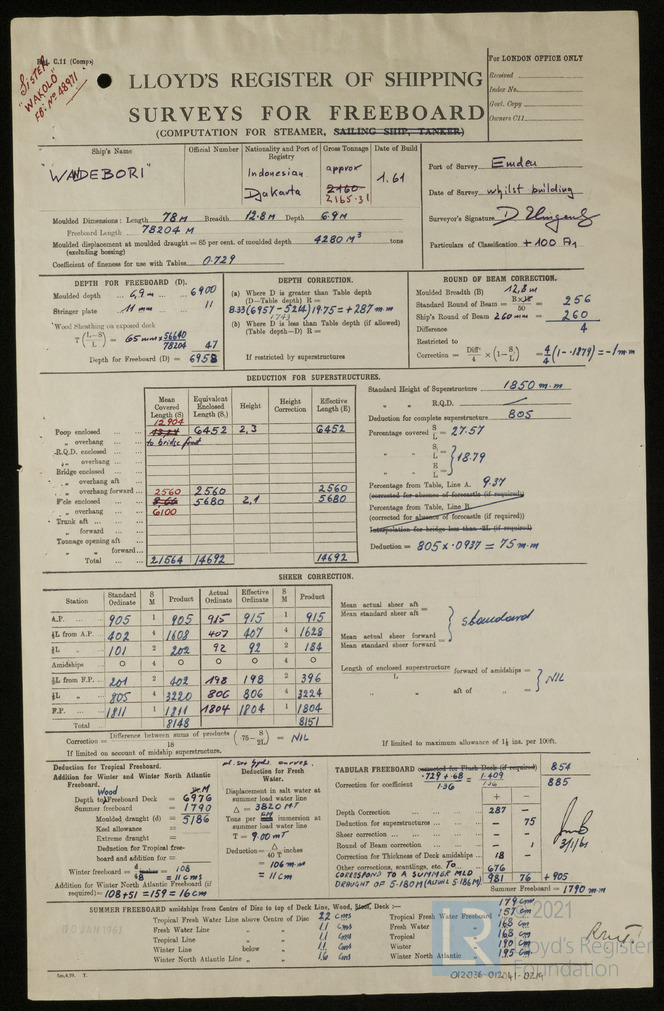 C.11 (Comp)
SISTER
"WAKOLO"
FB: No 48971
LLOYD'S REGISTER OF SHIPPING
SURVEYS FOR FREEBOARD
(COMPUTATION FOR STEAMER, SAILING SHIP, TANKER)
For LONDON OFFICE ONLY
Received
Index No.
Govt. Copy
Owners C11
Ship's Name
Official Number
Nationality and Port of Registry
Gross Tonnage
Date of Build
"WADEBORI"
Indonesian
Djakarta
approx
2160
2165.31
1.61
Port of Survey Emden
Date of Survey whilst building
Surveyor's Signature
Particulars of Classification + 100 A1
Moulded Dimensions: Length 78 M Breadth 12.8 M Depth 6.9 M
Freeboard Length 78204 M
Moulded displacement at moulded draught = 85 per cent. of moulded depth 4280 M³ tons
(excluding bossing)
Coefficient of fineness for use with Tables 0.729
DEPTH FOR FREEBOARD (D).
Moulded depth 6,9 m 6900
Stringer plate 11 mm 11
Wood Sheathing on exposed deck
T (L-S/L) = 65 mm × 56640/78204 47
Depth for Freeboard (D) = 6958
DEPTH CORRECTION.
(a) Where D is greater than Table depth
(D—Table depth) R =
8.33 (6957-5214) 19.75 = + 287 mm
1743
(b) Where D is less than Table depth (if allowed)
(Table depth—D) R =
If restricted by superstructures
ROUND OF BEAM CORRECTION.
Moulded Breadth (B) 12,8 m
Standard Round of Beam = B×12/50 = 256
Ship's Round of Beam 260 mm = 260
Difference 4
Restricted to
Correction = Diff/4 × (1-S/L) = 4/4 (1-.1879) = -1 m.m
DEDUCTION FOR SUPERSTRUCTURES.
Mean Covered Length (S)
Equivalent Enclosed Length (S₁)
Height
Height Correction
Effective Length (E)
12904
Poop enclosed 6452 2,3 6452
„ overhang to bridge front
R.Q.D. enclosed
„ overhang
Bridge enclosed
„ overhang aft
„ overhang forward 2560 2560 2560
F'cle enclosed 5680 2,1 5680
„ overhang 6100
Trunk aft
„ forward
Tonnage opening aft
„ „ forward
Total 21564 14692 14692
Standard Height of Superstructure 1850 m.m
„ „ R.Q.D.
Deduction for complete superstructure 805
Percentage covered S/L = 27.57
S₁/L =
E/L = 18.79
Percentage from Table, Line A. 9.37
(corrected for absence of forecastle (if required))
Percentage from Table, Line B.
(corrected for absence of forecastle (if required))
Interpolation for bridge less than .2L (if required)
Deduction = 805 × .0937 = 75 m.m
SHEER CORRECTION.
Station
Standard Ordinate
S M
Product
Actual Ordinate
Effective Ordinate
S M
Product
A.P. 905 1 905 915 915 1 915
⅙L from A.P. 402 4 1608 407 407 4 1628
⅓L „ 101 2 202 92 92 2 184
Amidships 0 4 0 0 0 4 0
⅓L from F.P. 201 2 402 198 198 2 396
⅙L „ 805 4 3220 806 806 4 3224
F.P. 1811 1 1811 1804 1804 1 1804
Total 8148 8151
Mean actual sheer aft =
Mean standard sheer aft
Mean actual sheer forward =
Mean standard sheer forward
Standard
Length of enclosed superstructure forward of amidships =
L
„ aft of „ =
NIL
Correction = Difference between sums of products/18 (.75 - S/2L) = NIL
If limited on account of midship superstructure.
If limited to maximum allowance of 1½ ins. per 100ft.
Deduction for Tropical Freeboard.
Addition for Winter and Winter North Atlantic Freeboard.
Wood
Depth to Freeboard Deck = 6976
Summer freeboard = 1790
Moulded draught (d) = 5186
Keel allowance =
Extreme draught =
Deduction for Tropical freeboard and addition for =
Winter freeboard = d/48 = 108
= 11 cms
Addition for Winter North Atlantic Freeboard (if required) = 108+51 = 159 = 16 cm
Deduction for Fresh Water.
Displacement in salt water at summer load water line
Δ = 3820 MT
Tons per cm immersion at summer load water line
T = 9.00 MT
Deduction = Δ/40 T
= 106 m.m
= 11 cm
TABULAR FREEBOARD corrected for Flush Deck (if required) 854
Correction for coefficient .729+.68/1.36 = 1.409/1.36 885
+ -
Depth Correction 287 —
Deduction for superstructures — 75
Sheer correction — —
Round of Beam correction — 1
Correction for Thickness of Deck amidships 18 —
Other corrections, scantlings, etc. TO 676
CORRESPOND TO A SUMMER MLD 981 76 +905
DRAUGHT OF 5.180 M (ACTUAL 5.186 M)
Summer Freeboard = 1790 m.m
3/1/61
SUMMER FREEBOARD amidships from Centre of Disc to top of Deck Line, Wood, Steel, Deck:— 179 cm
Tropical Fresh Water Line above Centre of Disc 22 cms
Fresh Water Line „ „ 11 cms
Tropical Line „ „ 11 cms
Winter Line below „ 11 cms
Winter North Atlantic Line „ „ 16 cms
Tropical Fresh Water Freeboard 157 cm
Fresh Water „ 168 cm
Tropical „ 168 cm
Winter „ 190 cm
Winter North Atlantic „ 195 cm
JAN 1961
© 2021
LR
Lloyd's Register
Foundation
012036-012041-0214